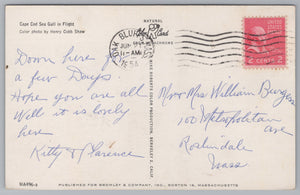 Cape Cod Sea Gull in Flight
Color photo by Henry Cobb Shaw
NATURAL
OAK BLUFFS
11 AM
1954
2 CENTS 2
Down here for
a few Days
Hope you are all
Well it is lovely
here
Kitty & Clarence
Mr & Mrs William Burger
100 Metropolitan
ave
Roslindale
Mass
PUBLISHED FOR BROMLEY & COMPANY, INC., BOSTON 10, MASSACHUSETTS